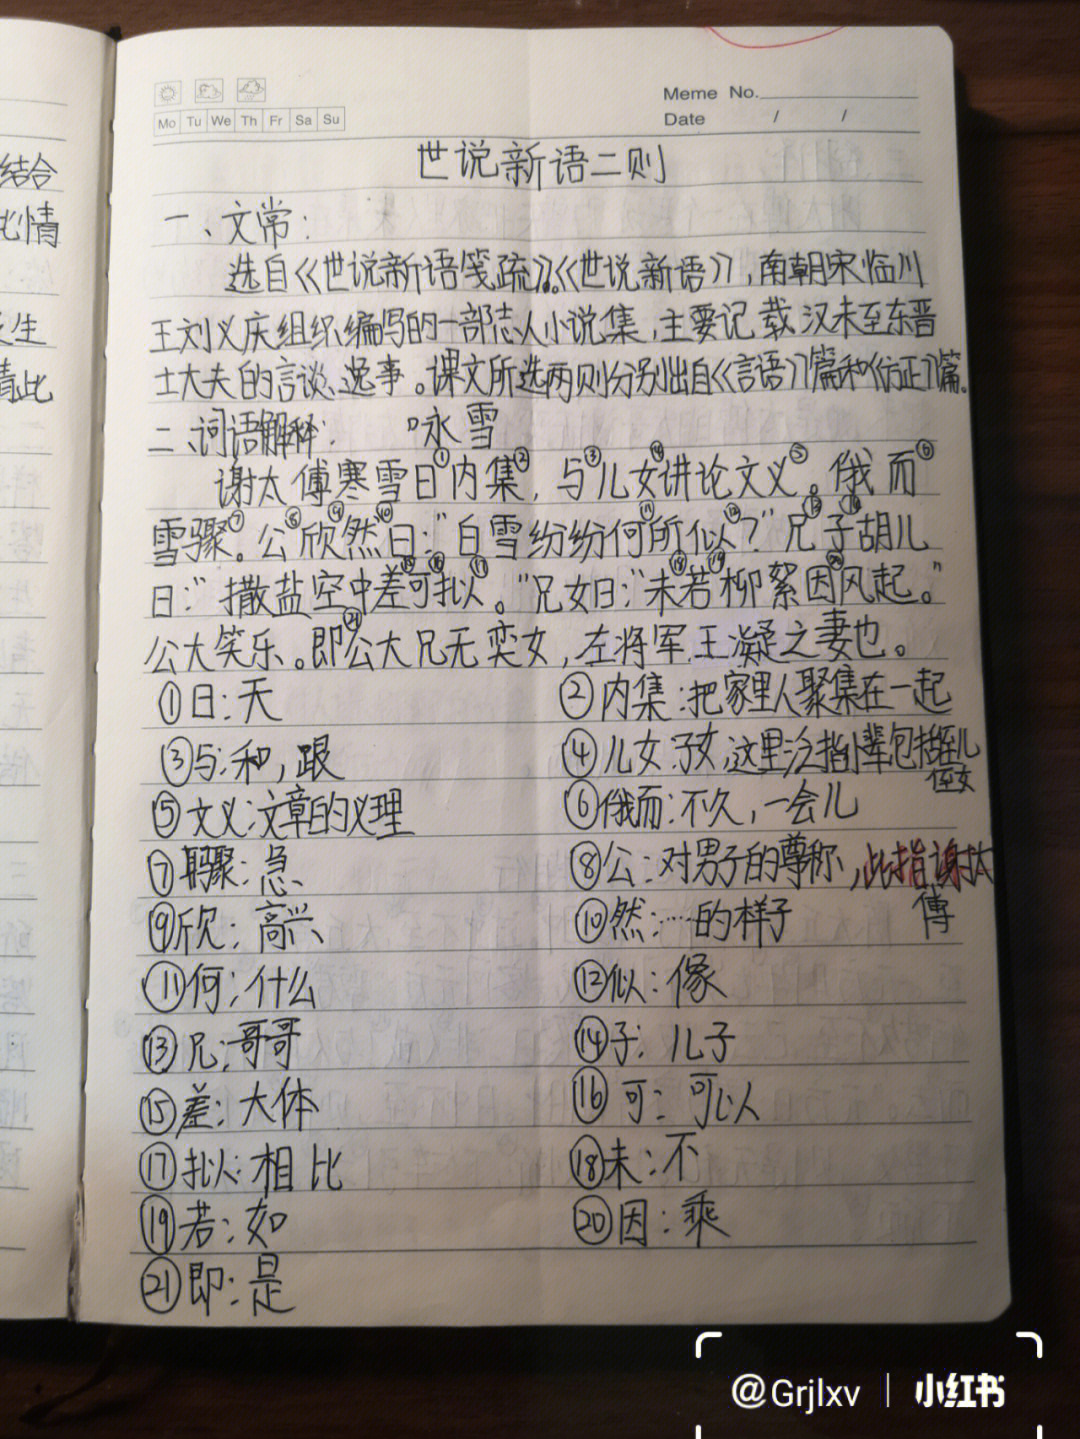 Meme No.
Mo Tu We Th Fr Sa Su
Date / /
世说新语二则
一、文常:
选自《世说新语笺疏》。《世说新语》,南朝宋临川
王刘义庆组织编写的一部志人小说集,主要记载汉末至东晋
士大夫的言谈、逸事。课文所选两则分别出自《言语》篇和《方正》篇。
二、词语解释: 咏雪
谢太傅寒雪日①内集②,与③儿女④讲论文义⑤。俄而⑥
雪骤⑦。公⑧欣⑨然⑩曰:“白雪纷纷何⑪所似⑫?”兄⑬子⑭胡儿
曰:“撒盐空中差⑮可⑯拟⑰。”兄女曰:“未⑱若⑲柳絮因⑳风起。”
公大笑乐。即㉑公大兄无奕女,左将军王凝之妻也。
①日:天 ②内集:把家里人聚集在一起
③与:和,跟 ④儿女:子女,这里泛指小辈包括侄儿
侄女
⑤文义:文章的义理 ⑥俄而:不久,一会儿
⑦骤:急 ⑧公:对男子的尊称,此指谢太
傅
⑨欣:高兴 ⑩然:……的样子
⑪何:什么 ⑫似:像
⑬兄:哥哥 ⑭子:儿子
⑮差:大体 ⑯可:可以
⑰拟:相比 ⑱未:不
⑲若:如 ⑳因:乘
㉑即:是
结合
比情
生
情此
@Grjlxv | 小红书